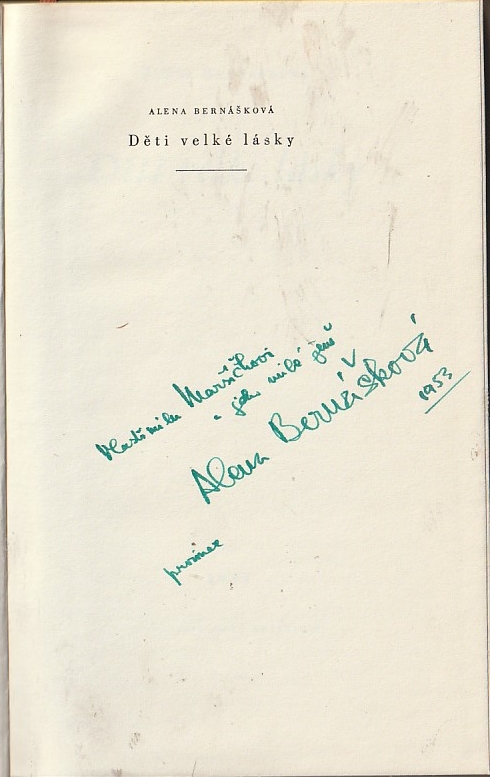 ALENA BERNÁŠKOVÁ
Děti velké lásky
Vlastimilu Maršíčkovi
a jeho milé ženě
Alena Bernášková
1953
prosinec